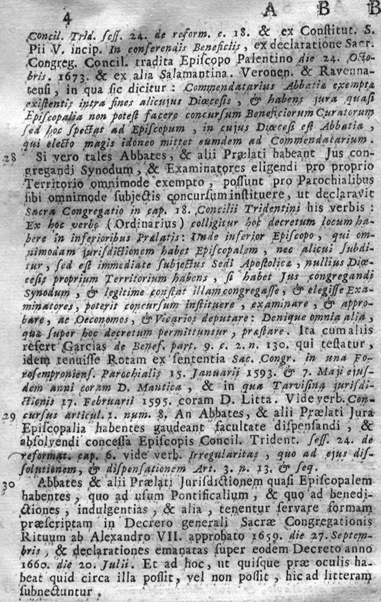 4 A B B
Concil. Trid. sess. 24. de reform. c. 18. & ex Constitut. S.
Pii V. incip. In conferendis Beneficiis, ex declaratione Sacr.
Congreg. Concil. tradita Episcopo Palentino die 24. Octo-
bris. 1673. & ex alia Salamantina. Veronen. & Ravenna-
tensi, in qua sic dicitur: Commendatarius Abbatia exempta
existentis intra fines alicujus Diœcesis, & habens jura quasi
Episcopalia non potest facere concursum Beneficiorum Curatorum
sed hoc spectat ad Episcopum, in cujus Diœcesi est Abbatia,
qui electo magis idoneo mittet eumdem ad Commendatarium.
28 Si vero tales Abbates, & alii Prælati habeant Jus con-
gregandi Synodum, & Examinatores eligendi pro proprio
Territorio omnimode exempto, possunt pro Parochialibus
sibi omnimode subjectis concursum instituere, ut declaravit
Sacra Congregatio in cap. 18. Concilii Tridentini his verbis:
Ex hoc verbo (Ordinarius) colligitur hoc decretum locum ha-
bere in inferioribus Prælatis: Unde inferior Episcopo, qui om-
nimodam jurisdictionem habet Episcopalem, nec alicui Subdi-
tur, sed est immediate subjectus Sedi Apostolicæ, nullius Diœ-
cesis proprium Territorium habens, si habet Jus congregandi
Synodum, & legitime constat illam congregasse, & elegisse Exa-
minatores, poterit concursum instituere, examinare, & appro-
bare, ac Oeconomos, & Vicarios deputare: Denique omnia alia
qua super hoc decretum permittuntur, præstare. Ita cum aliis
refert Garcias de Benef. part. 9. c. 2. n. 130. qui testatur,
idem tenuisse Rotam ex sententia Sac. Congr. in una Fo-
rosemproniensi. Parochialis 15. Januarii 1593. & 7. Maji ejus-
dem anni coram D. Mantica, & in qua Tarvisina jurisdi-
ctionis 17. Februarii 1595. coram D. Litta. Vide verb. Con-
29 cursus articul. 1. num. 8, An Abbates, & alii Prælati Jura
Episcopalia habentes gaudeant facultate dispensandi, &
absolvendi concessa Episcopis Concil. Trident. sess. 24. de
reformat. cap. 6. vide verb. Irregularitas, quo ad ejus dis-
solutionem, & dispensationem Art. 3. n. 13. & seq.
30 Abbates & alii Prælati Jurisdictionem quasi Episcopalem
habentes, quo ad usum Pontificalium, & quo ad benedi-
ctiones, indulgentias, & alia, tenentur servare formam
præscriptam in Decreto generali Sacræ Congregationis
Rituum ab Alexandro VII. approbato 1659. die 27. Septem-
bris, & declarationes emanatas super eodem Decreto anno
1660. die 20. Julii. Et ad hoc, ut quisque præ oculis ha-
beat quid circa illa possit, vel non possit, hic ad litteram
subnectuntur.